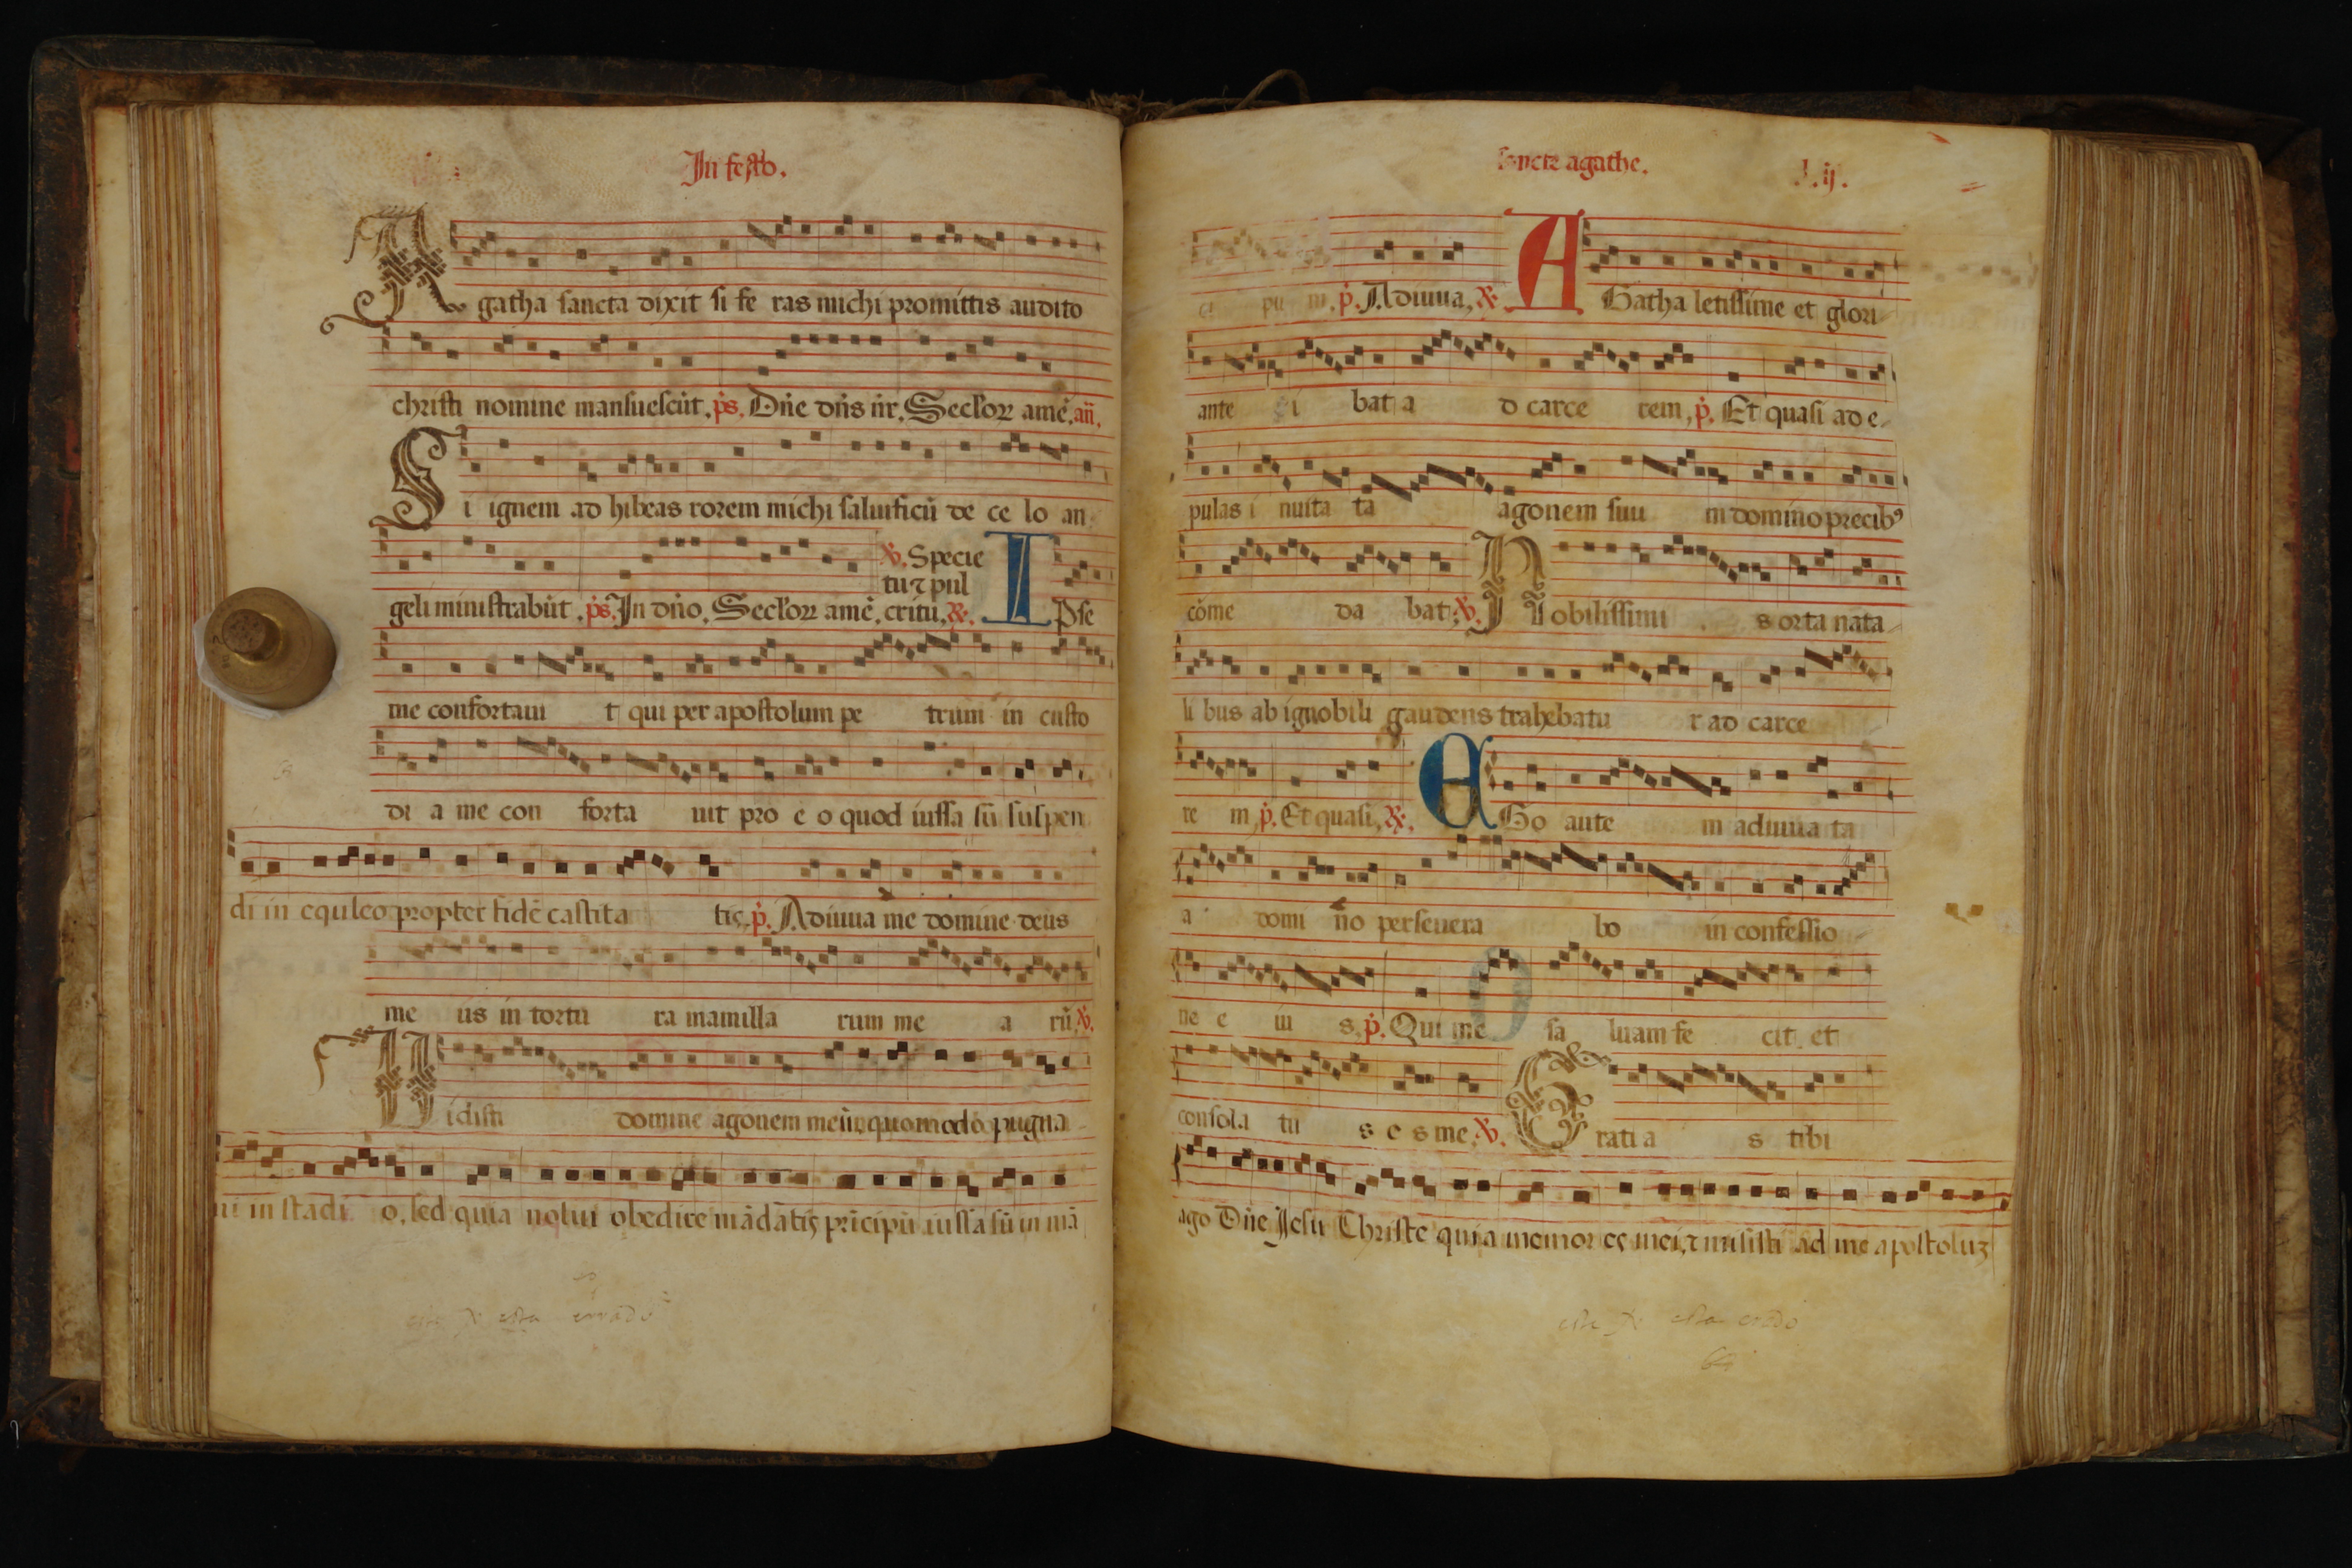 In festo.
Agatha sancta dixit si fe ras michi promittis audito
christi nomine mansuescũt. ps. Dñe dñs nr̃. Seclorꝝ amẽ. añ.
Si ignem ad hibeas rorem michi saluificũ de ce lo an
℣. Specie
tu ⁊ pul
geli ministrabũt. ps. In dño. Seclorꝝ amẽ. critu. ℟. IPse
me confortaui t qui per apostolum pe trum in custo
di a me con forta uit pro e o quod iussa sũ suspen
di in equleo propter fidẽ castita tis. p̃. Adiuua me domine deus
me us in tortu ra mamilla rum me a rũ. ℣.
Vidisti domine agonem meũ quomodo pugna
ui in stadi o. sed quia nolui obedire mãdatis prĩcipũ iussa sũ in mã
este ℣ esta errado
sancte agathe. l.ij.
pu m. p̃. Adiuua. ℟. AGatha letissime et glori
ante i bat a d carce rem. p̃. Et quasi ad e
pulas i nuita ta agonem suu m domino precibꝰ
cõme da bat. ℣. Nobilissimi s orta nata
li bus ab ignobili gaudens trahebatu r ad carce
re m. p̃. Et quasi. ℟. EGo aute m adiuua ta
a domi no perseuera bo in confessio
ne e iu s. p̃. Qui me sa luam fe cit et
consola tu s e s me. ℣. Grati a s tibi
ago Dñe Jesu Christe quia memor es mei, ⁊ misisti ad me apostoluꝫ
este ℣ esta erado
64